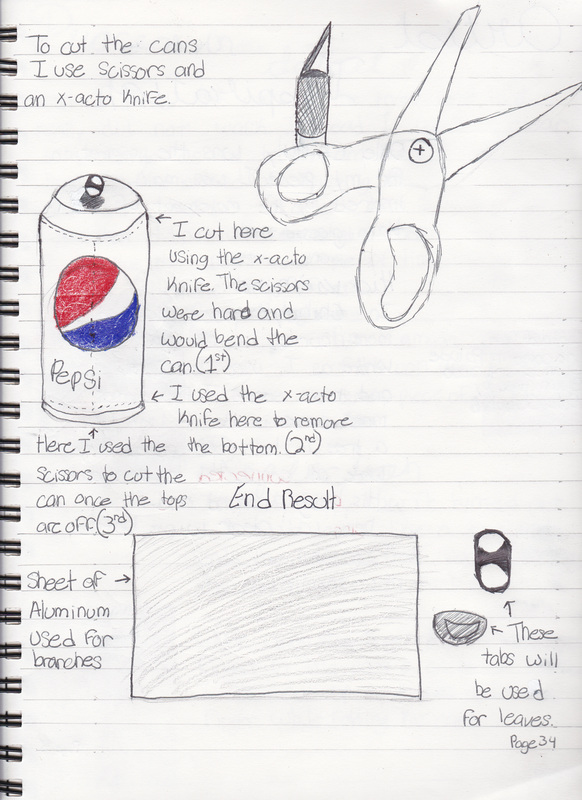 To cut the cans
I use scissors and
an x-acto knife.
← I cut here
using the x-acto
knife. The scissors
were hard and
would bend the
can. (1st)
Pepsi
← I used the x-acto
knife here to remove
the bottom. (2nd)
Here I used the
scissors to cut the
can once the tops
are off. (3rd)
End Result
Sheet of →
Aluminum
used for
branches
← These
tabs will
be used
for leaves.
Page 34